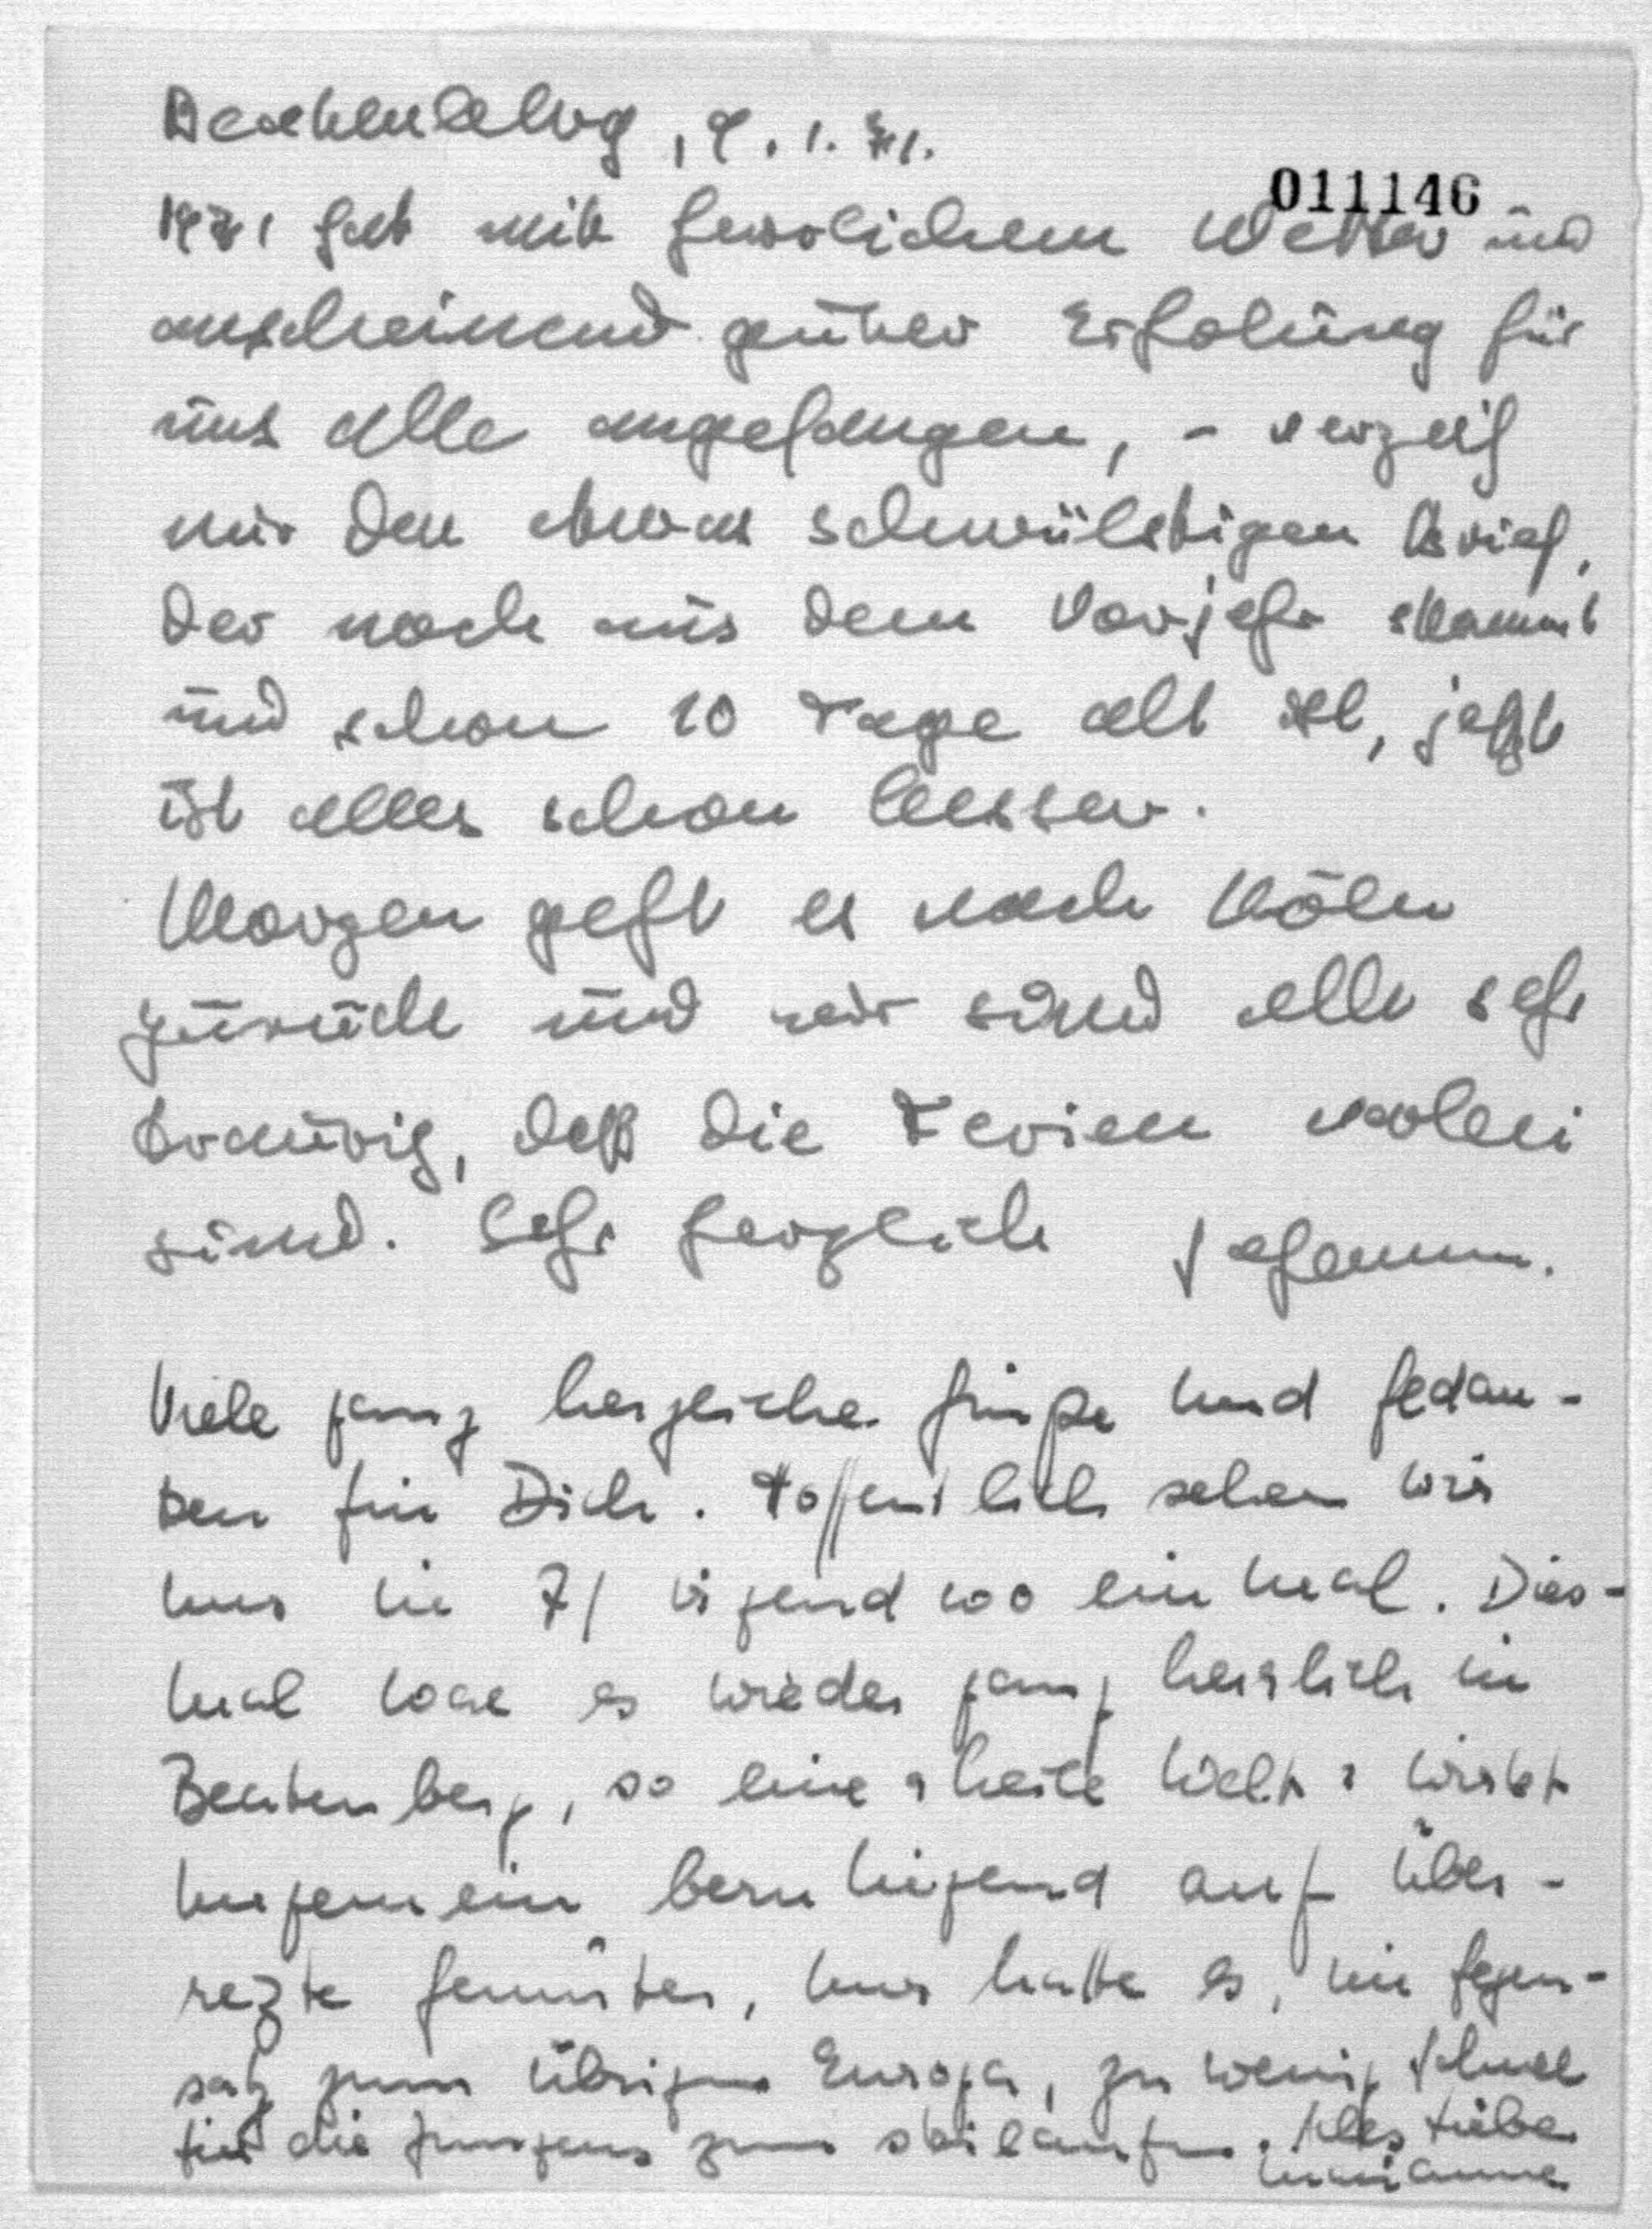 Beatenberg, 9.1.71.
011146
1971 hat mit herrlichem Wetter und
anscheinend guter Erholung für
uns alle angefangen, - verzeih
mir den etwas schwülstigen Brief,
der noch aus dem Vorjahr stammt
und schon 10 Tage alt ist, jetzt
ist alles schon besser.
Morgen geht es nach Köln
zurück und wir sind alle sehr
traurig, daß die Ferien vorbei
sind. Sehr herzlich
Viele ganz herzliche Grüße und Gedan-
ken für Dich. Hoffentlich sehen wir
uns in 71 irgendwo einmal. Dies-
mal war es wieder ganz herrlich in
Beatenberg, so eine heile Welt wirkt
ungemein beruhigend auf über-
reizte Gemüter, nur hatte es, im Gegen-
satz zum übrigen Europa, zu wenig Schnee
für die Jungens zum skilaufen. Alles Liebe
Marianne